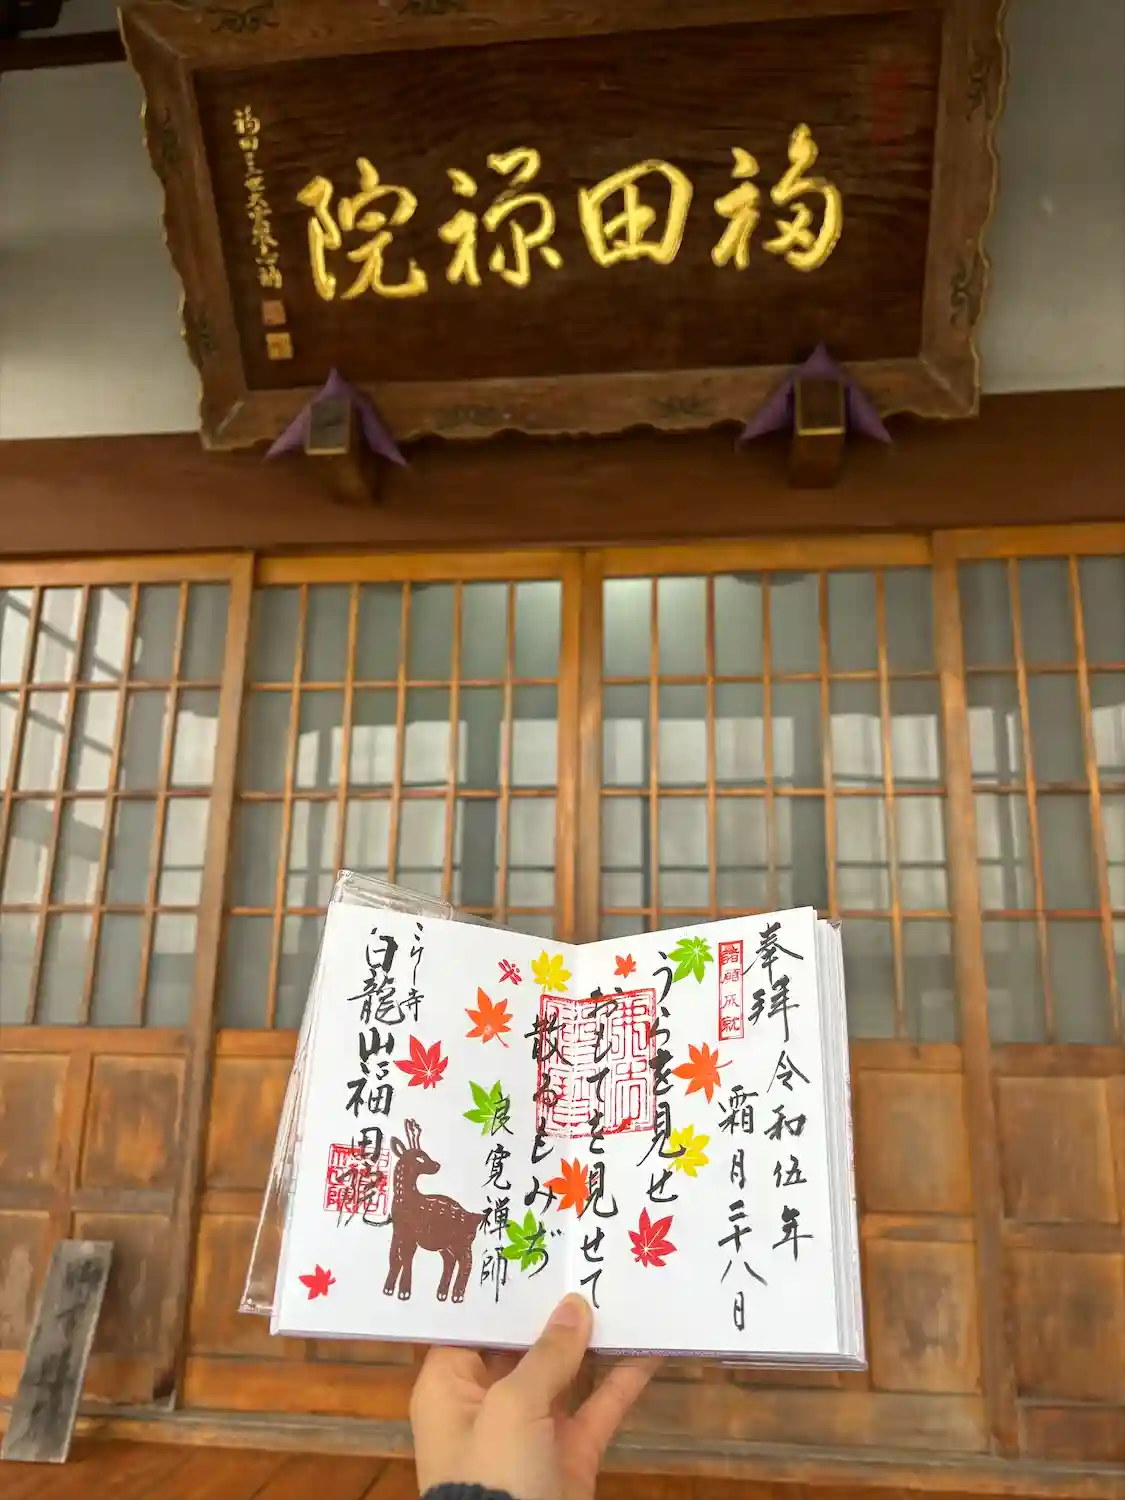 福田禅院
奉拝 令和伍年
霜月二十八日
諸願成就
うらを見せ
おもてを見せて
散るもみぢ
良寛禅師
こけし寺
白龍山福田院